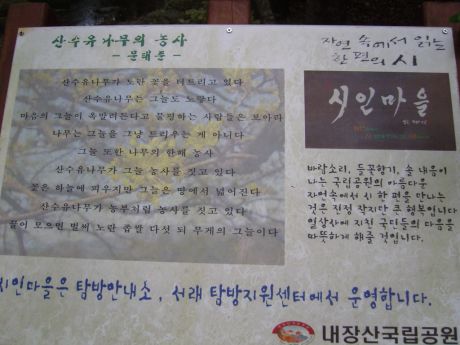 산수유나무의 농사
- 문태준 -
산수유나무가 노란 꽃을 터트리고 있다
산수유나무는 그늘도 노랗다
마음의 그늘이 옥말려든다고 불평하는 사람들은 보아라
나무는 그늘을 그냥 드리우는 게 아니다
그늘 또한 나무의 한해 농사
산수유나무가 그늘 농사를 짓고 있다
꽃은 하늘에 피우지만 그늘은 땅에서 넓어진다
산수유나무가 농부처럼 농사를 짓고 있다
끌어 모으면 벌써 노란 좁쌀 다섯 되 무게의 그늘이다
자연 속에서 읽는
한 편의 시
시인마을
바람소리, 들꽃향기, 숲 내음이
나는 국립공원의 아름다운
자연속에서 시 한 편을 만나는
것은 진정 작지만 큰 행복입니다
일상사에 지친 국민들의 마음을
따뜻하게 해줄 것입니다.
시인마을은 탐방안내소, 서래 탐방지원센터에서 운영합니다.
내장산국립공원